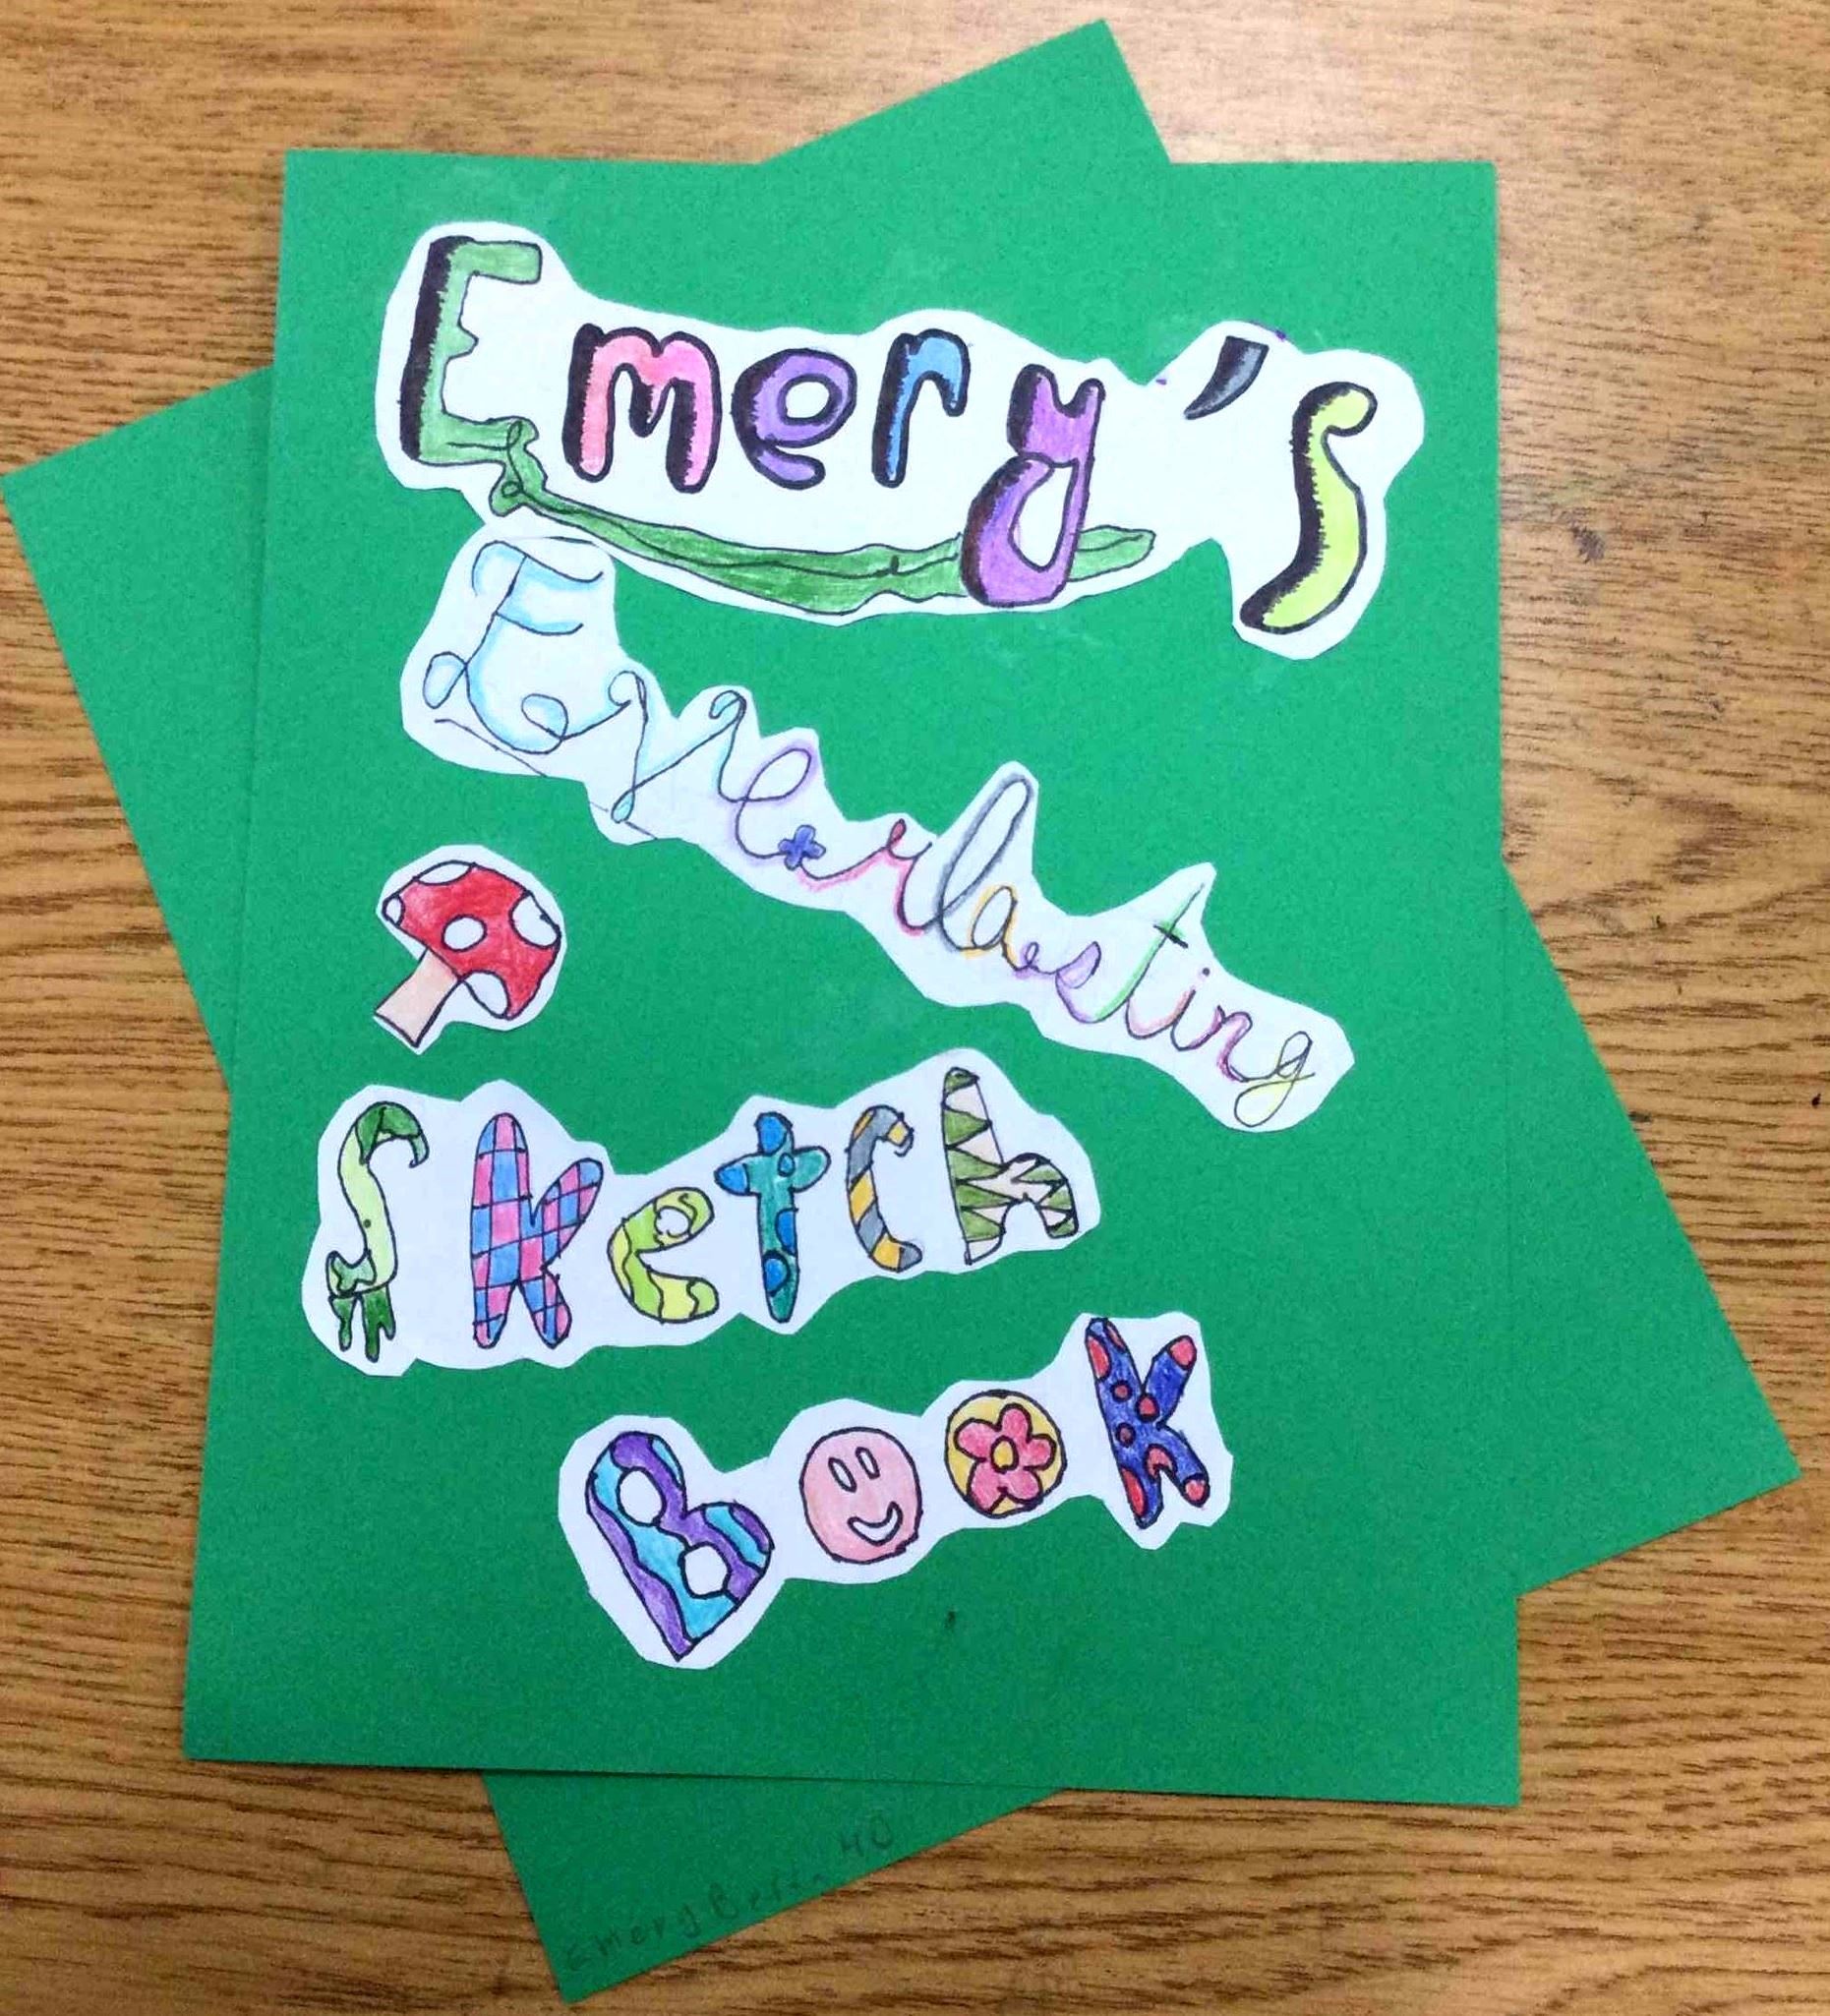 Emery's
Everlasting
Sketch
Book
Emery